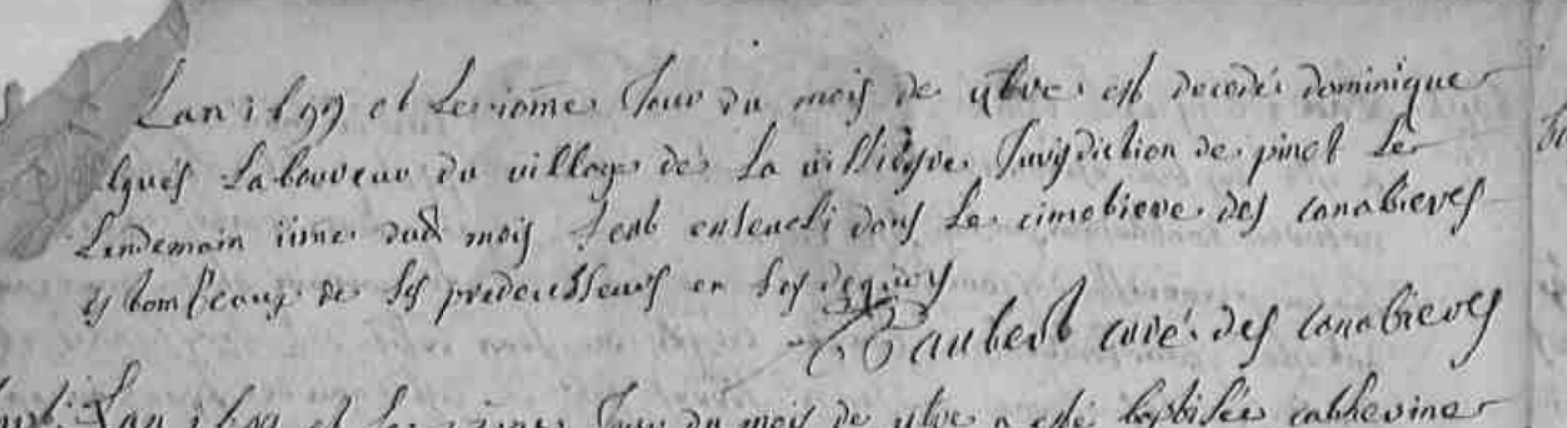 Lan 1699 et le 10me Jour du mois de 9bre est decedé dominique
laboureur du village de la Jurisdiction de pinet le
Lendemain 11me dud mois feut enseveli dans le cimetiere des canabieres
es tombeaux de ses predecesseurs en foy dequoy
Raubert curé des canabieres
Lan 1699 et le Jour du mois de 9bre a esté baptisée catherine